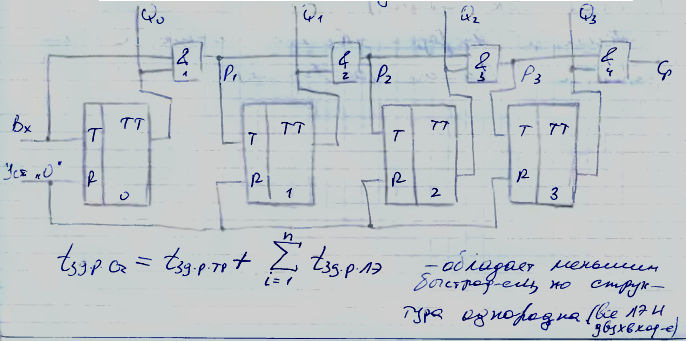 Q₀ Q₁ Q₂ Q₃
& 1 & 2 & 3 & 4
P₁ P₂ P₃ Cр
Вх T TT T TT T TT T TT
Уст „0" R 0 R 1 R 2 R 3
tзд.р.сч = tзд.р.тр + ∑ⁿᵢ₌₁ tзд.р.ЛЭ
– обладает меньшим
быстрод-ем, но струк-
тура однородна (все ЛЭ И
двухвход-е)